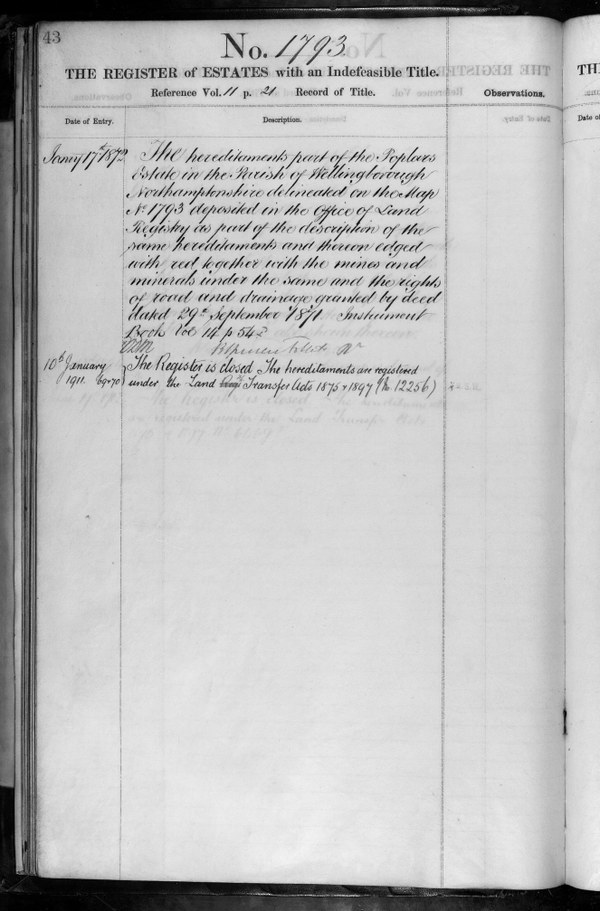 43
No. 1793
THE REGISTER of ESTATES with an Indefeasible Title.
Reference Vol. 11 p. 21 Record of Title.
Observations.
Date of Entry.
Description.
Jany 17th 1872
The hereditaments part of the Poplars
Estate in the Parish of Wellingborough
Northamptonshire delineated on the Map
No 1793 deposited in the Office of Land
Registry as part of the description of the
same hereditaments and thereon edged
with red together with the mines and
minerals under the same and the rights
of road and drainage granted by deed
dated 29th September 1871. Instrument
Book Vol 14 p 542
10th January
1911. 69+70
The Register is closed The hereditaments are registered
under the Land Transfer Acts 1875 & 1897 (No 12256)